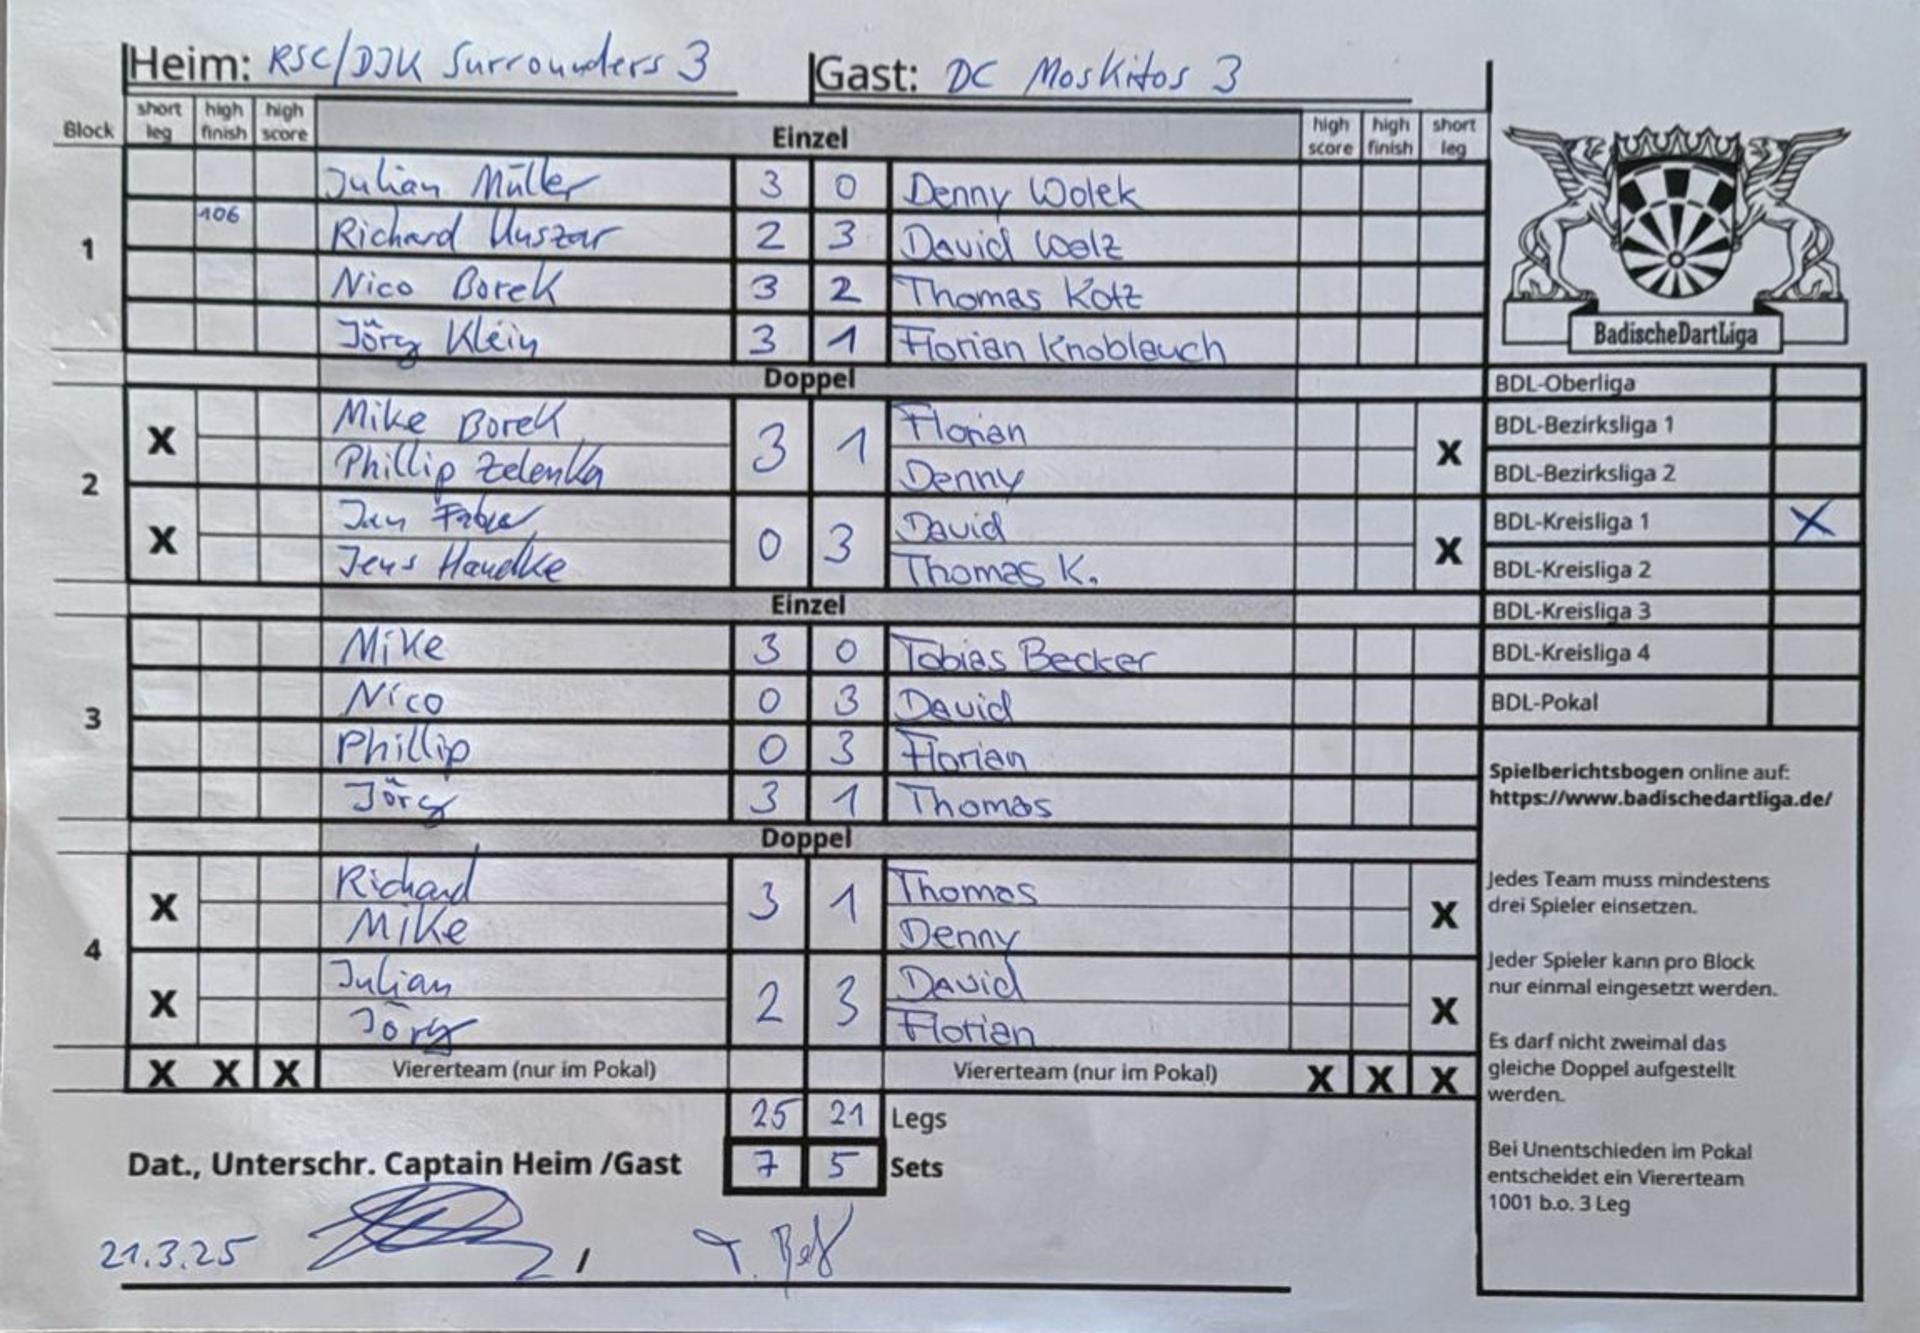 Heim: RSC/DJK Surrounders 3 Gast: DC Moskitos 3
Block short leg high finish high score Einzel high score high finish short leg
1
Julian Müller 3 0 Denny Wolek
106 Richard Huszar 2 3 David Welz
Nico Borek 3 2 Thomas Kotz
Jörg Klein 3 1 Florian Knoblauch
Doppel
2
X Mike Borek 3 1 Florian X
Phillip Zelenka Denny
X Jan Faber 0 3 David X
Jens Handke Thomas K.
Einzel
3
Mike 3 0 Tobias Becker
Nico 0 3 David
Phillip 0 3 Florian
Jörg 3 1 Thomas
Doppel
4
X Richard 3 1 Thomas X
Mike Denny
X Julian 2 3 David X
Jörg Florian
X X X Viererteam (nur im Pokal) Viererteam (nur im Pokal) X X X
25 21 Legs
Dat., Unterschr. Captain Heim /Gast 7 5 Sets
21.3.25 /
BadischeDartLiga
BDL-Oberliga
BDL-Bezirksliga 1
BDL-Bezirksliga 2
BDL-Kreisliga 1 X
BDL-Kreisliga 2
BDL-Kreisliga 3
BDL-Kreisliga 4
BDL-Pokal
Spielberichtsbogen online auf:
https://www.badischedartliga.de/
Jedes Team muss mindestens
drei Spieler einsetzen.
Jeder Spieler kann pro Block
nur einmal eingesetzt werden.
Es darf nicht zweimal das
gleiche Doppel aufgestellt
werden.
Bei Unentschieden im Pokal
entscheidet ein Viererteam
1001 b.o. 3 Leg